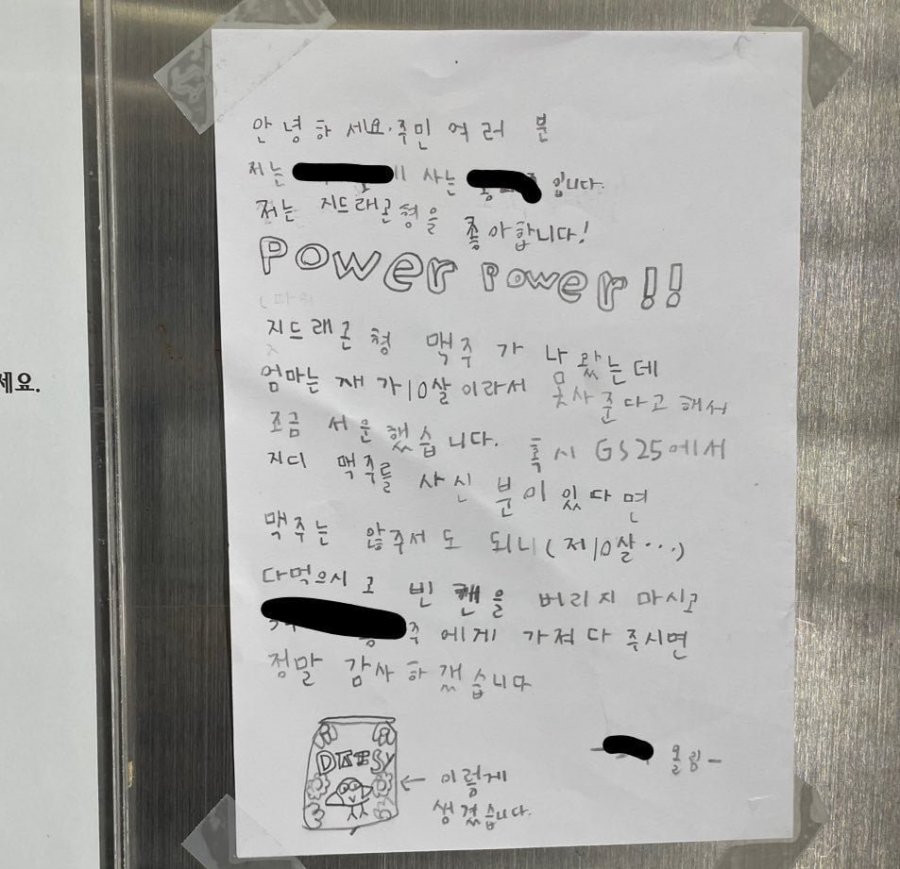 세요.
안녕하세요. 주민 여러분
저는 사는 입니다.
저는 지드래곤형을 좋아합니다!
POWER POWER!!
지드래곤 형 맥주가 나왔는데
엄마는 재가 10살이라서 못사준다고 해서
조금 서운했습니다. 혹시 GS25에서
지디 맥주를 사신 분이 있다면
맥주는 않주서도 되니 (제10살...)
다먹으시고 빈 캔을 버리지 마시고
주에게 가져다 주시면
정말 감사하겠습니다
올림-
← 이렇게
생겼습니다.